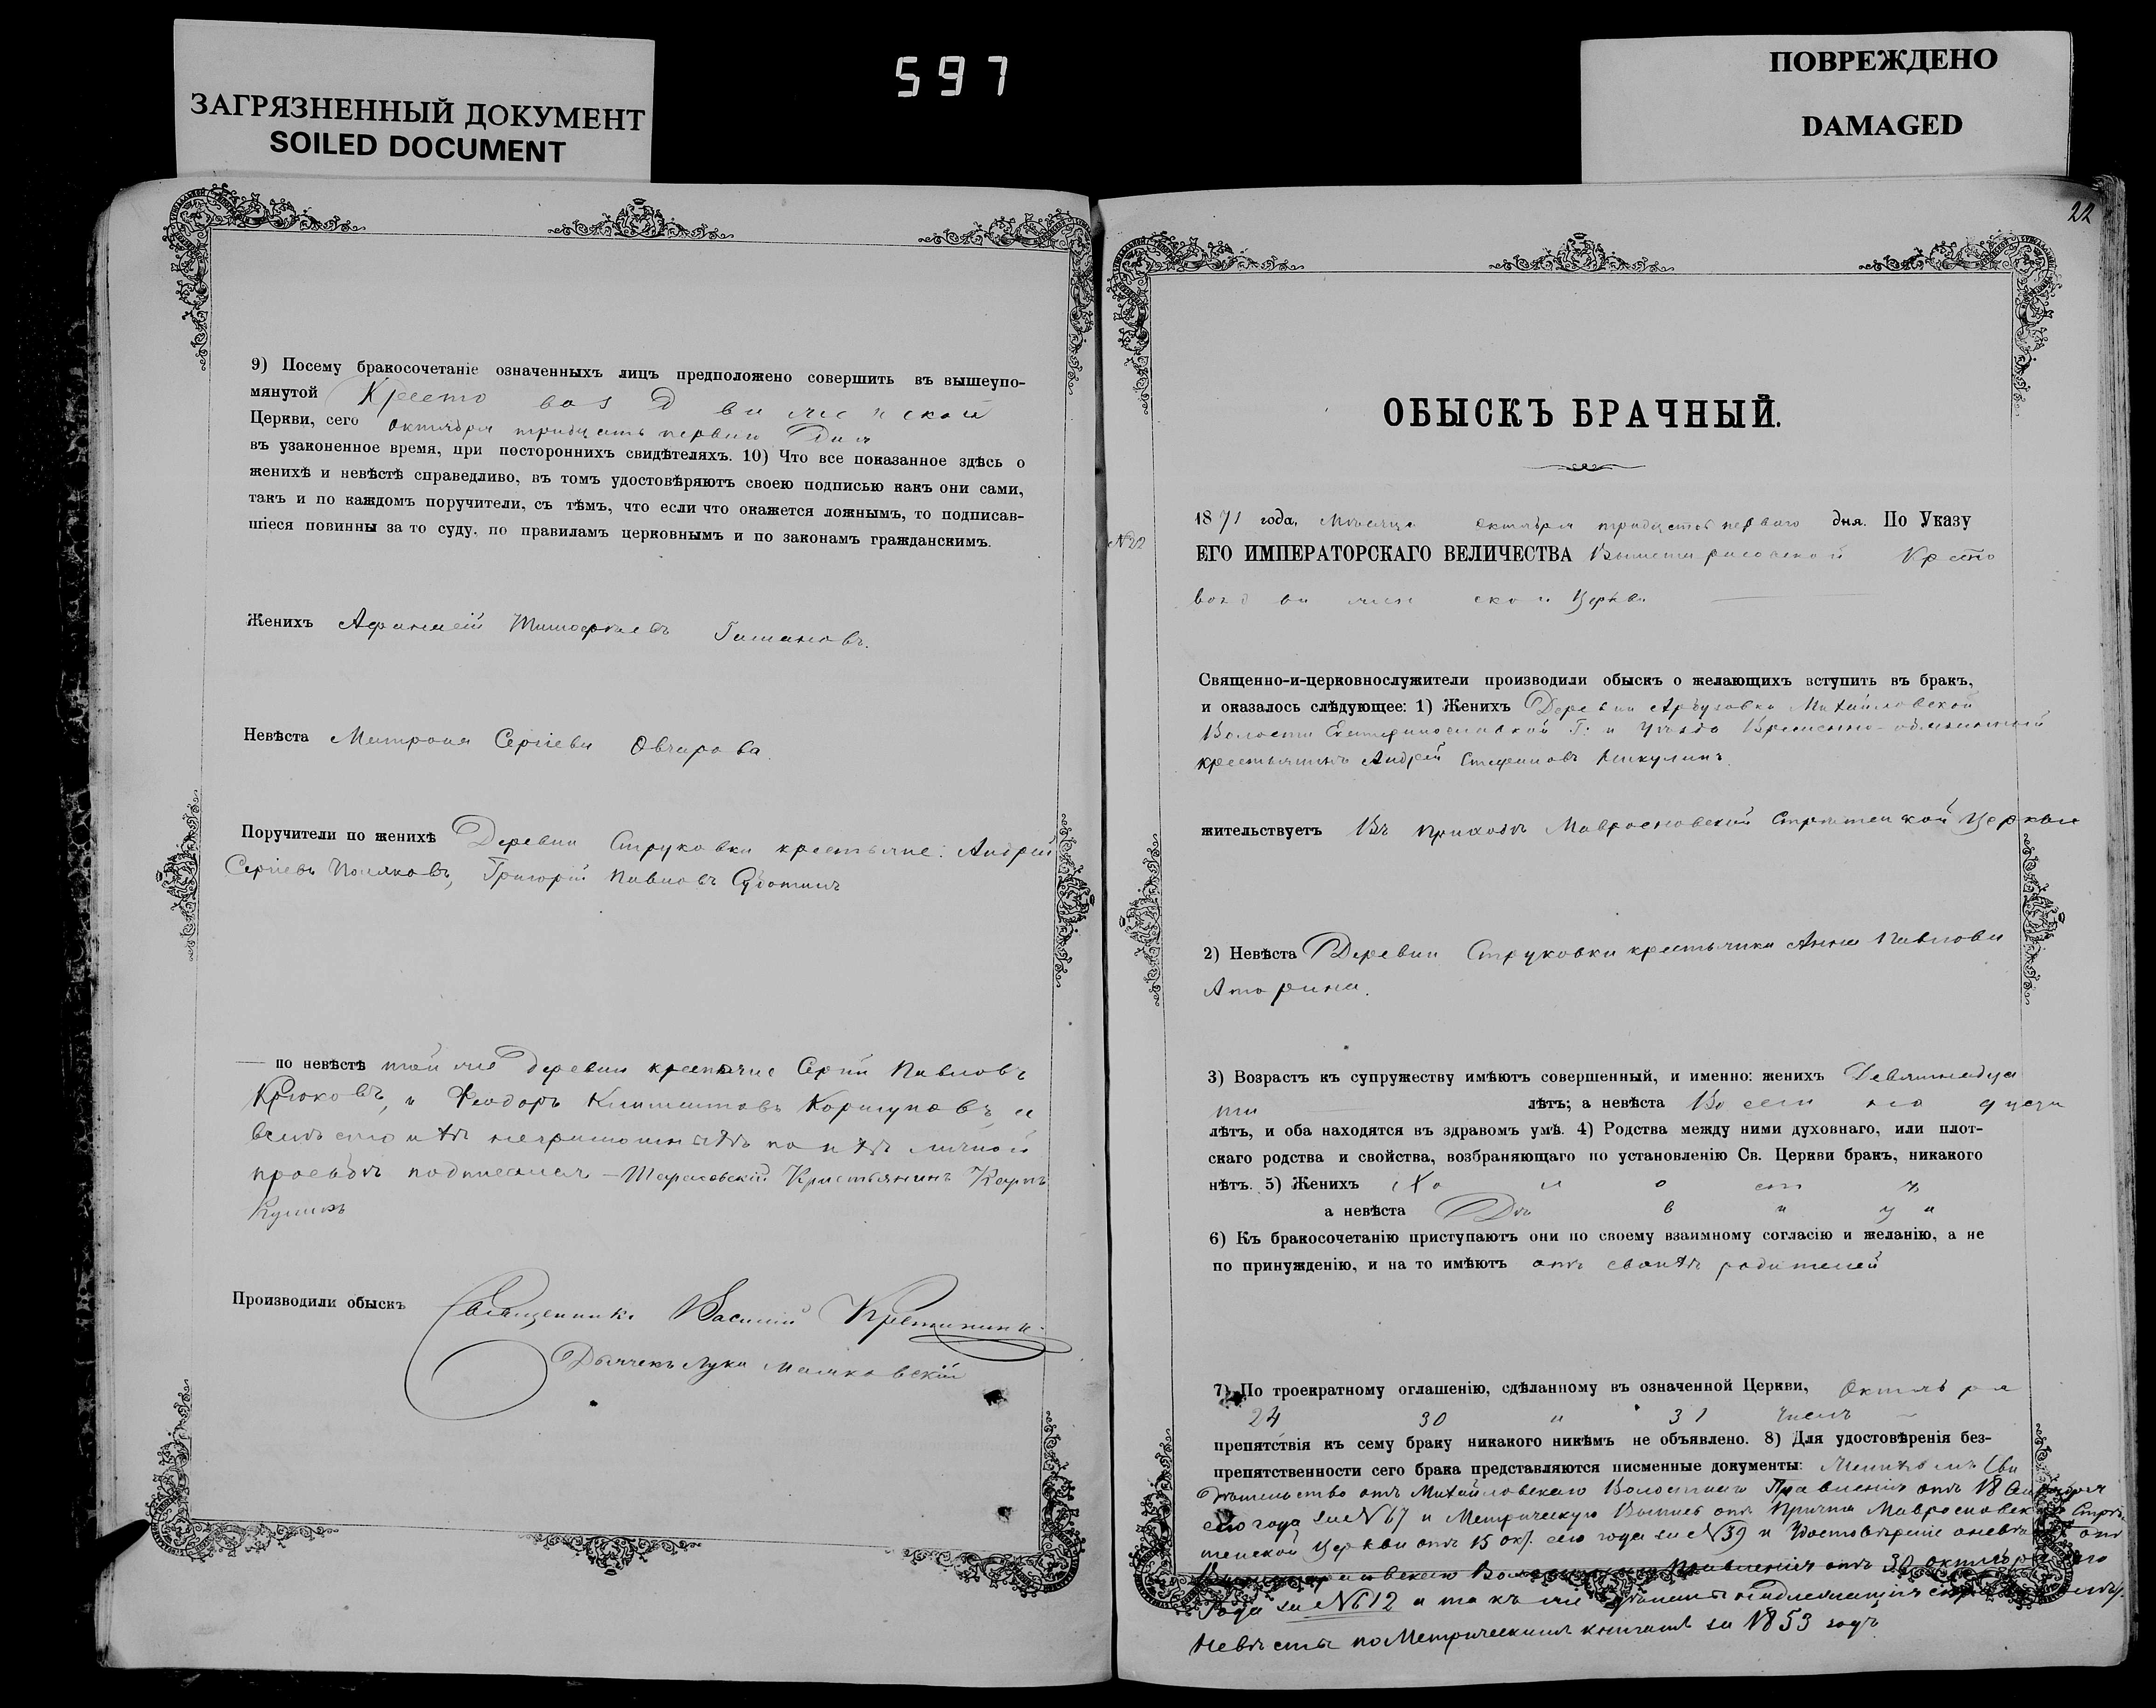 ЗАГРЯЗНЕННЫЙ ДОКУМЕНТ
SOILED DOCUMENT
597
ПОВРЕЖДЕНО
DAMAGED
9) Посему бракосочетаніе означенныхъ лицъ предположено совершить въ вышеупо-
мянутой Кресто воздвиженской
Церкви, сего октября тридцать перваго Дня
въ узаконенное время, при постороннихъ свидѣтеляхъ. 10) Что все показанное здѣсь о
женихѣ и невѣстѣ справедливо, въ томъ удостовѣряютъ своею подписью какъ они сами,
такъ и по каждомъ поручители, съ тѣмъ, что если что окажется ложнымъ, то подписав-
шіеся повинны за то суду, по правиламъ церковнымъ и по законамъ гражданскимъ.
Женихъ Афанасій Тимофѣевъ
Невѣста Матрона Сергіева Овчарова.
Поручители по женихѣ Деревни Струковки крестьяне: Андрей
Сергіевъ Поляковъ, Григорій Павловъ Суботинъ
— по невѣстѣ той же деревни крестьяне Павловъ
Крюковъ, и Феодоръ Коршуновъ а
вмѣсто ихъ неграмотныхъ по ихъ личной
прозьбѣ подписался — Тарасовскій Кристьянинъ Карпъ
Производили обыскъ Священникъ Василій
Дьячекъ Лука
22
ОБЫСКЪ БРАЧНЫЙ.
№ 22
1871 года, Мѣсяца октября тридцать перваго дня. По Указу
ЕГО ИМПЕРАТОРСКАГО ВЕЛИЧЕСТВА Вышетарасовской Кресто
воздвиженской Церкви
Священно-и-церковнослужители производили обыскъ о желающихъ вступить въ бракъ,
и оказалось слѣдующее: 1) Женихъ Деревни Арбузовки Михайловской
Волости Екатеринославской Г: и Уѣзда Временно-обязанный
крестьянинъ Андрей Стефановъ Никулинъ.
жительствуетъ Въ приходѣ Стрѣтенской Церкви
2) Невѣста Деревни Струковки крестьянка Анна Павлова
Аторина.
3) Возрастъ къ супружеству имѣютъ совершенный, и именно: женихъ Девятнадца
ти лѣтъ; а невѣста Восемнадцати
лѣтъ, и оба находятся въ здравомъ умѣ. 4) Родства между ними духовнаго, или плот-
скаго родства и свойства, возбраняющаго по установленію Св. Церкви бракъ, никакого
нѣтъ. 5) Женихъ Холостъ
а невѣста Дѣвица
6) Къ бракосочетанію приступаютъ они по своему взаимному согласію и желанію, а не
по принужденію, и на то имѣютъ отъ своихъ родителей
7) По троекратному оглашенію, сдѣланному въ означенной Церкви, Октября
24 30 и 31 числъ —
препятствія къ сему браку никакого никѣмъ не объявлено. 8) Для удостовѣренія без-
препятственности сего брака представляются писменные документы: Женихомъ Сви
дѣтельство отъ Михайловскаго Волостнаго Правленія отъ 18
сего года за № 67 и Метрическую Выпись отъ Причта Стрѣ
тенской Церкви отъ 15 окт. сего года за № 39 и Удостовѣреніе о невѣстѣ отъ
Волостнаго Правленія отъ 30 октября сего
Года за № 612 а также
Невѣсты по Метрическимъ книгамъ за 1853 годъ